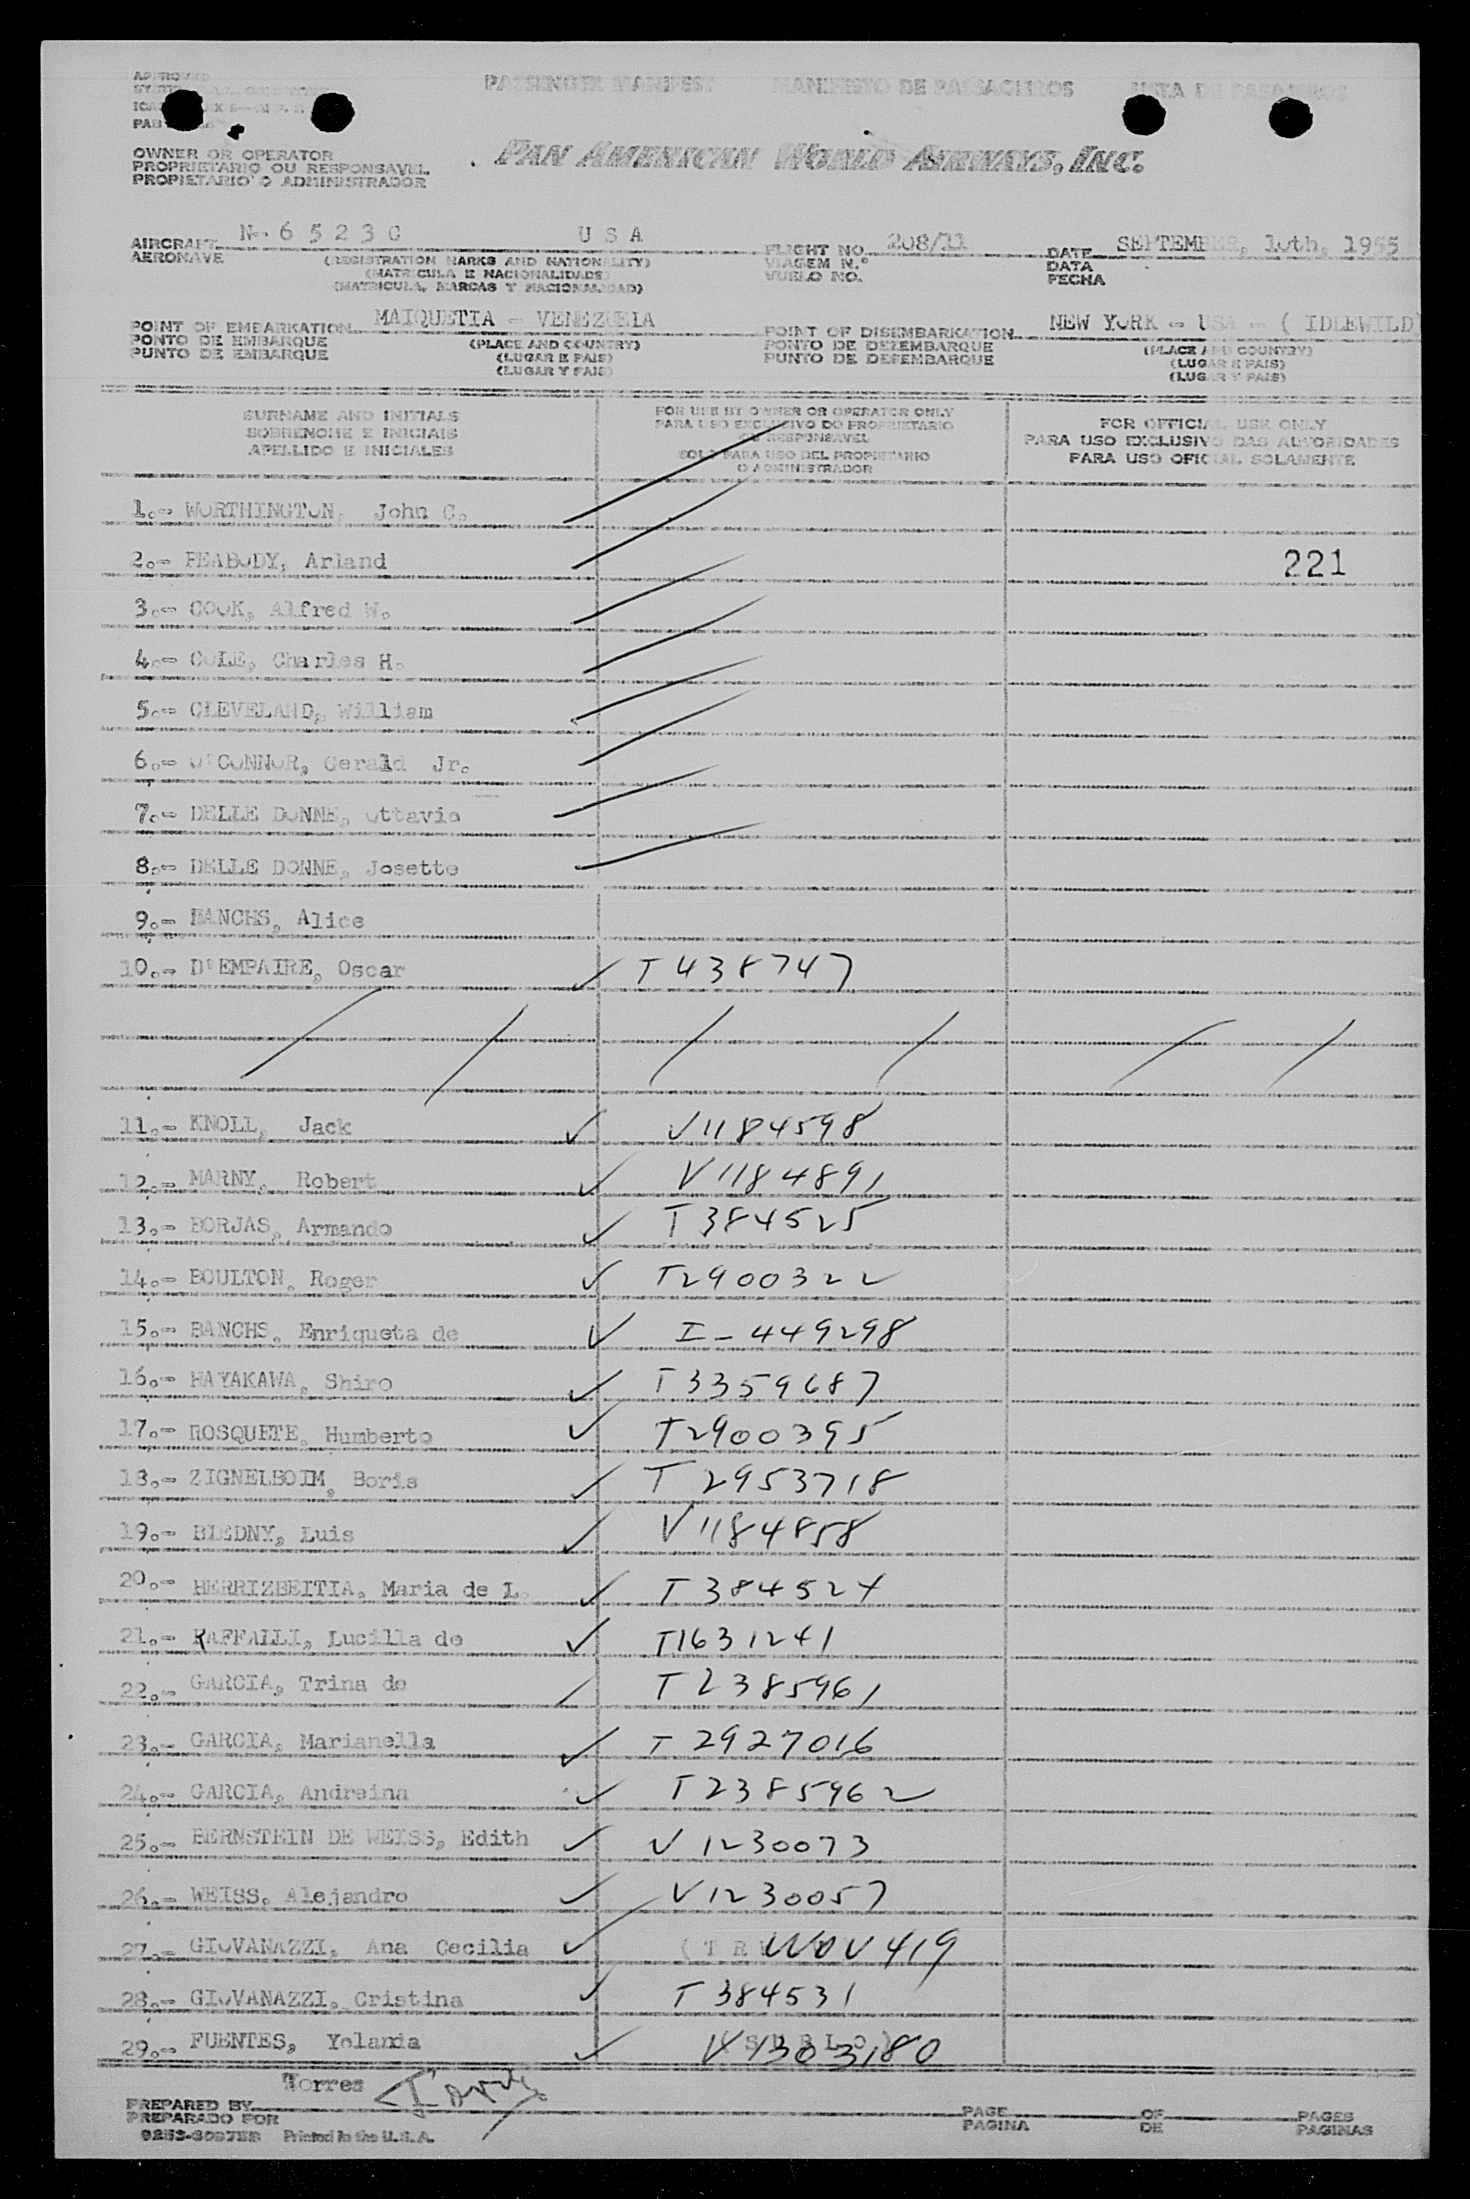 APPROVED
PASSENGER MANIFEST MANIFESTO DE PASSAGEIROS LISTA DE PASAJEROS
OWNER OR OPERATOR
PROPRIETARIO OU RESPONSAVEL
PROPIETARIO O ADMINISTRADOR
PAN AMERICAN WORLD AIRWAYS, INC.
AIRCRAFT N. 6 5 2 3 C U S A FLIGHT NO. 208/11 DATE SEPTEMBER, 10th, 1955
AERONAVE (REGISTRATION MARKS AND NATIONALITY) VIAGEM N.º DATA
(MATRICULA E NACIONALIDADE) VUELO NO. FECHA
(MATRICULA, MARCAS Y NACIONALIDAD)
POINT OF EMBARKATION MAIQUETIA - VENEZUELA POINT OF DISEMBARKATION NEW YORK - USA - ( IDLEWILD
PONTO DE EMBARQUE (PLACE AND COUNTRY) PONTO DE DEZEMBARQUE (PLACE AND COUNTRY)
PUNTO DE EMBARQUE (LUGAR E PAIS) PUNTO DE DESEMBARQUE (LUGAR E PAIS)
(LUGAR Y PAIS) (LUGAR Y PAIS)
SURNAME AND INITIALS
SOBRENOME E INICIAIS
APELLIDO E INICIALES
FOR USE BY OWNER OR OPERATOR ONLY
PARA USO EXCLUSIVO DO PROPRIETARIO
OU RESPONSAVEL
SOLO PARA USO DEL PROPIETARIO
O ADMINISTRADOR
FOR OFFICIAL USE ONLY
PARA USO EXCLUSIVO DAS AUTORIDADES
PARA USO OFICIAL SOLAMENTE
1.- WORTHINGTON, John C.
2.- PEABODY, Arland
221
3.- COOK, Alfred W.
4.- COLE, Charles H.
5.- CLEVELAND, William
6.- O'CONNOR, Gerald Jr.
7.- DELLE DONNE, Ottavio
8.- DELLE DONNE, Josette
9.- BANCHS, Alice
10.- D'EMPAIRE, Oscar T438747
11.- KNOLL, Jack V1184598
12.- MARNY, Robert V1184891
13.- BORJAS, Armando T384525
14.- BOULTON, Roger T2900322
15.- BANCHS, Enriqueta de I-449298
16.- HAYAKAWA, Shiro T3359687
17.- ROSQUETE, Humberto T2900395
18.- ZIGNELBOIM, Boris T2953718
19.- BIEDNY, Luis V1184858
20.- HERRIZBEITIA, Maria de L. T384524
21.- RAFFALLI, Lucilla de T1631241
22.- GARCIA, Trina de T2385961
23.- GARCIA, Marianella T2927016
24.- GARCIA, Andreina T2385962
25.- BERNSTEIN DE WEISS, Edith V1230073
26.- WEISS, Alejandro V1230057
27.- GIOVANAZZI, Ana Cecilia
28.- GIOVANAZZI, Cristina T384531
29.- FUENTES, Yolanda
Torres
PREPARED BY PAGE OF PAGES
PREPARADO POR PAGINA DE PAGINAS
Printed in the U.S.A.